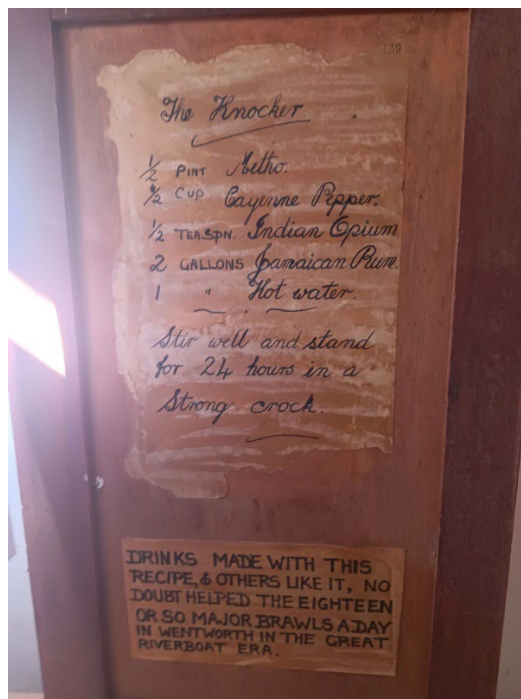 139
The Knocker.
½ PINT Metho.
½ CUP Cayenne Pepper.
½ TEASPN. Indian Opium
2 GALLONS Jamaican Rum.
1 " Hot water.
Stir well and stand
for 24 hours in a
Strong crock.
DRINKS MADE WITH THIS
RECIPE, & OTHERS LIKE IT, NO
DOUBT HELPED THE EIGHTEEN
OR SO MAJOR BRAWLS A DAY
IN WENTWORTH IN THE GREAT
RIVERBOAT ERA.